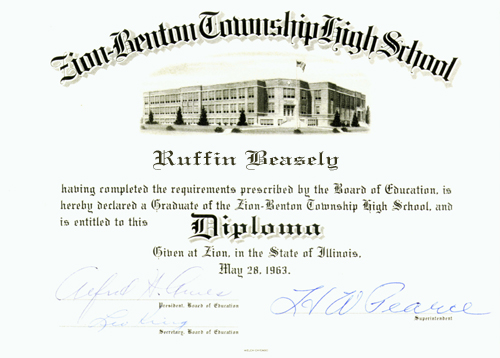 Zion-Benton Township High School
Ruffin Beasely
having completed the requirements prescribed by the Board of Education, is
hereby declared a Graduate of the Zion-Benton Township High School, and
is entitled to this Diploma
Given at Zion, in the State of Illinois,
May 28, 1963.
Alfred H.
President, Board of Education
Secretary, Board of Education
H W Pearce
Superintendent